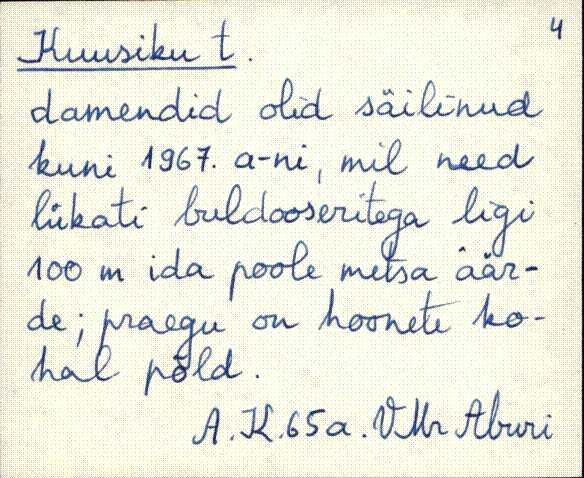 4
Kuusiku t.
damendid olid säilinud
kuni 1967. a-ni, mil need
lükati buldooseritega ligi
100 m ida poole metsa äär-
de; praegu on hoonete ko-
hal põld.
A.K. 65 a. VMr Aburi